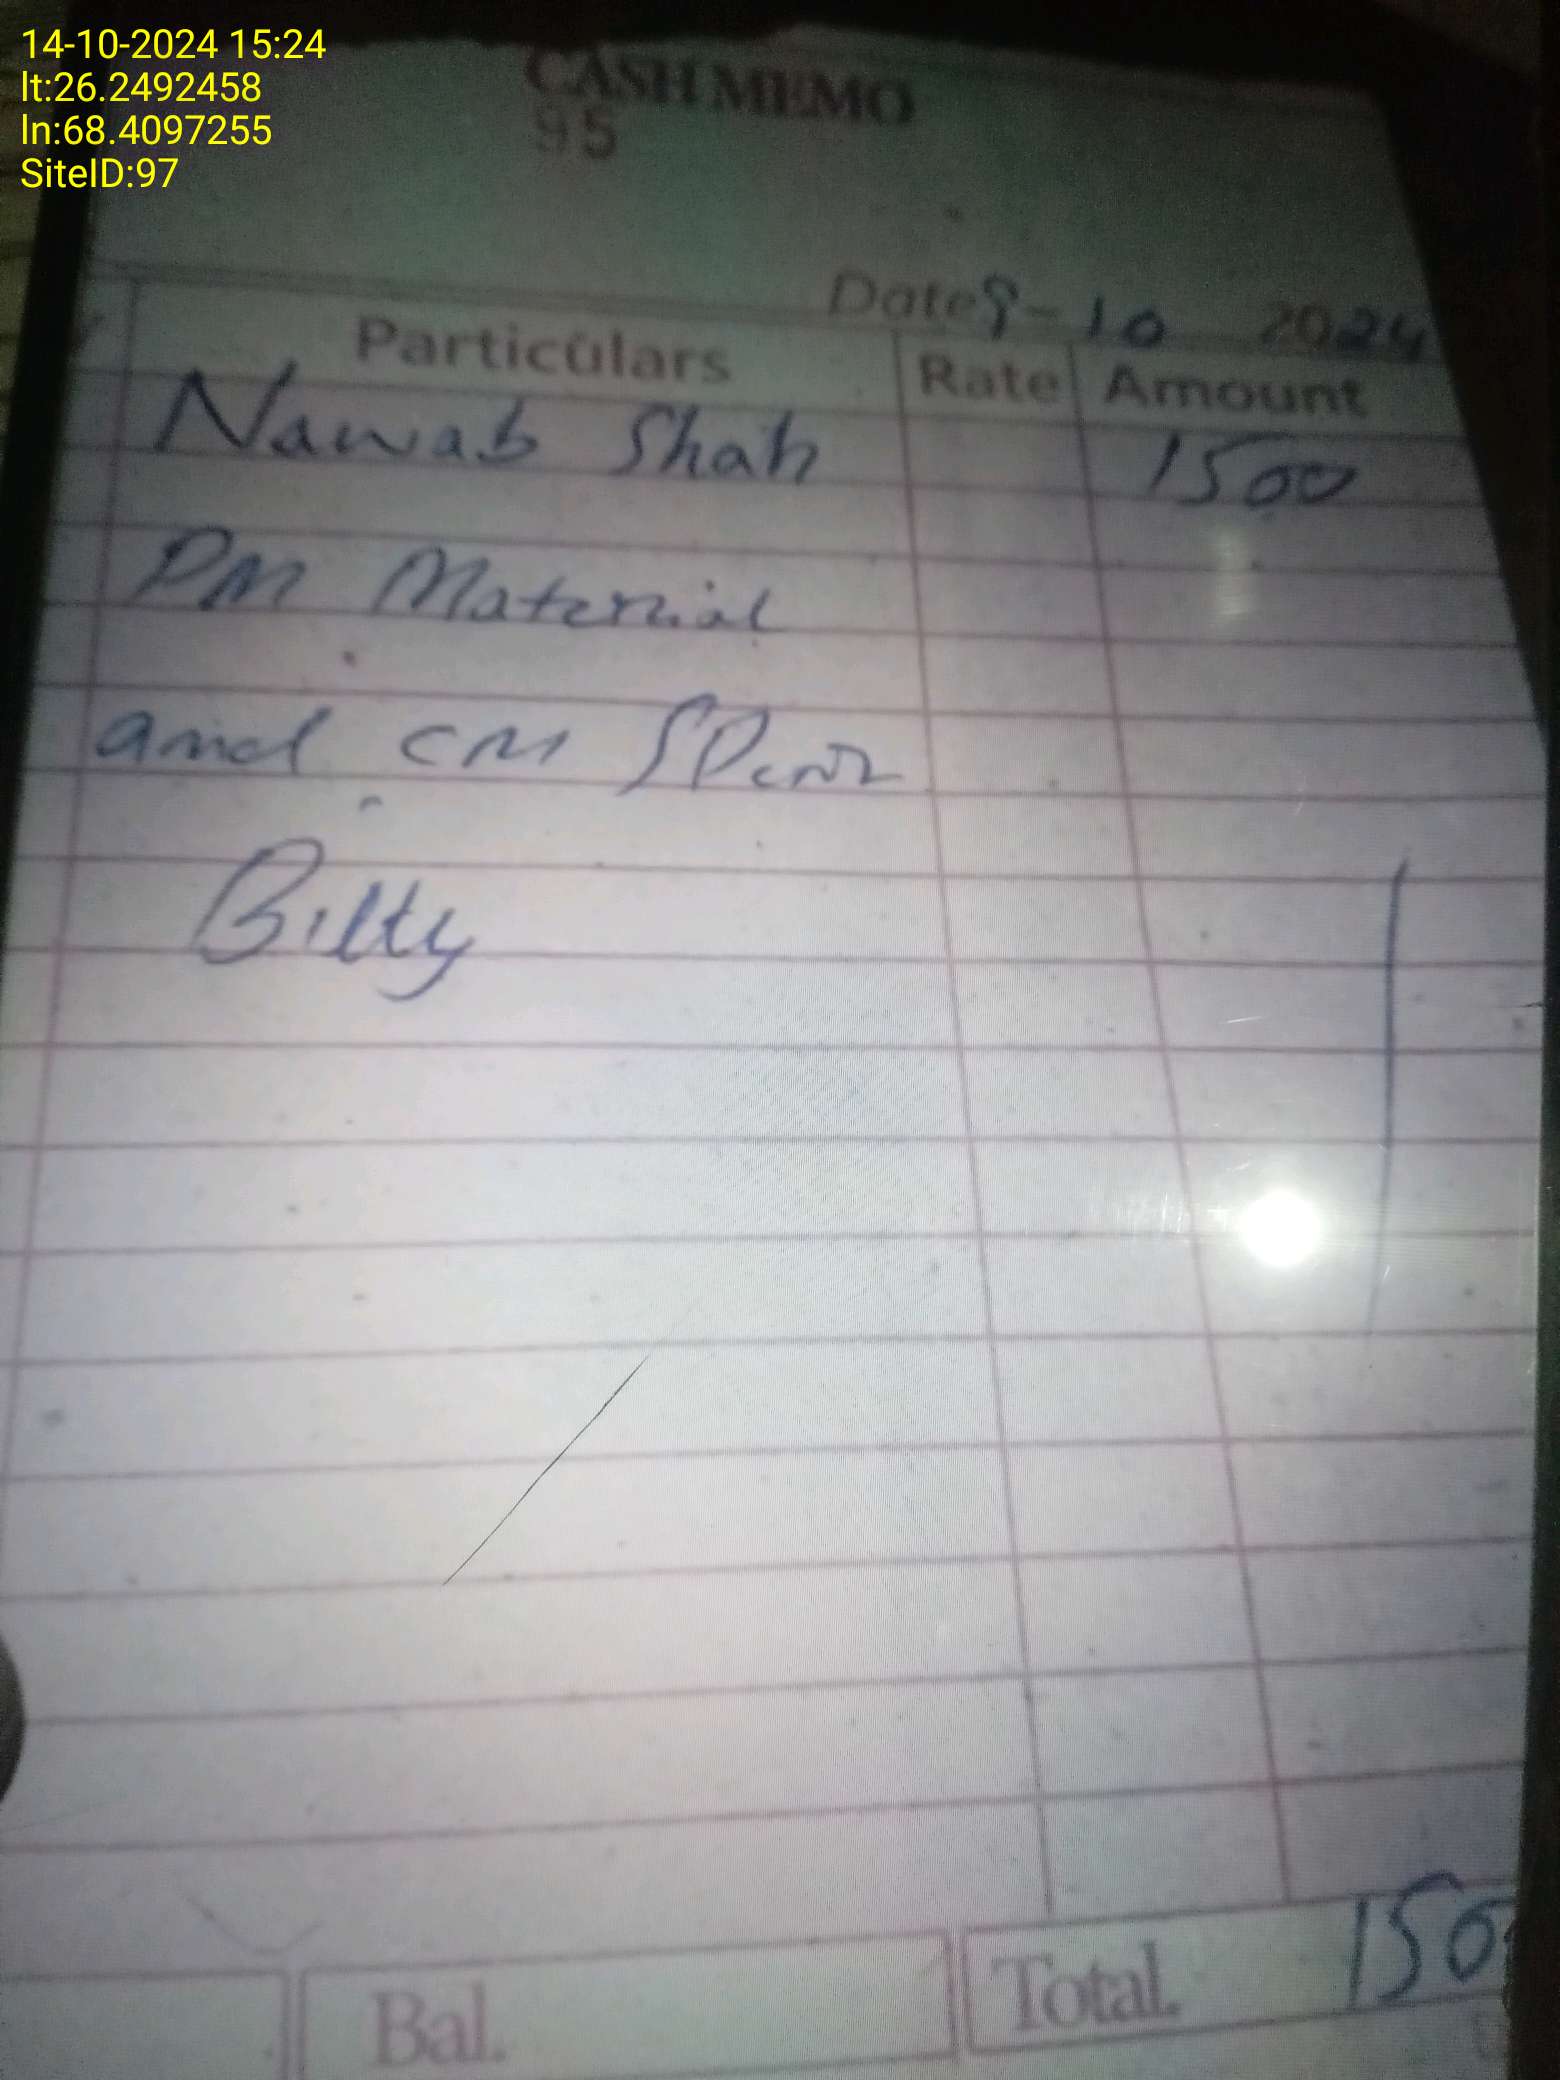 14-10-2024 15:24
lt:26.2492458
ln:68.4097255
SiteID:97
CASH MEMO
95
Date 8-10 2024
Particulars Rate Amount
Nawab Shah 1500
PM Material
and CM
Bilty
Bal. Total. 150